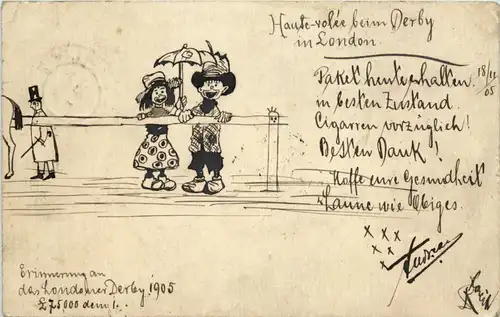 Haute-volée beim Derby
in London.
Paket heute erhalten. 18/11 05
in besten Zustand.
Cigarren vorzüglich!
Besten Dank!
Hoffe eure Gesundheit
Laune wie Obiges.
x x x
x x
x
Erinnerung an
das Londoner Derby 1905
£75000 dem 1.